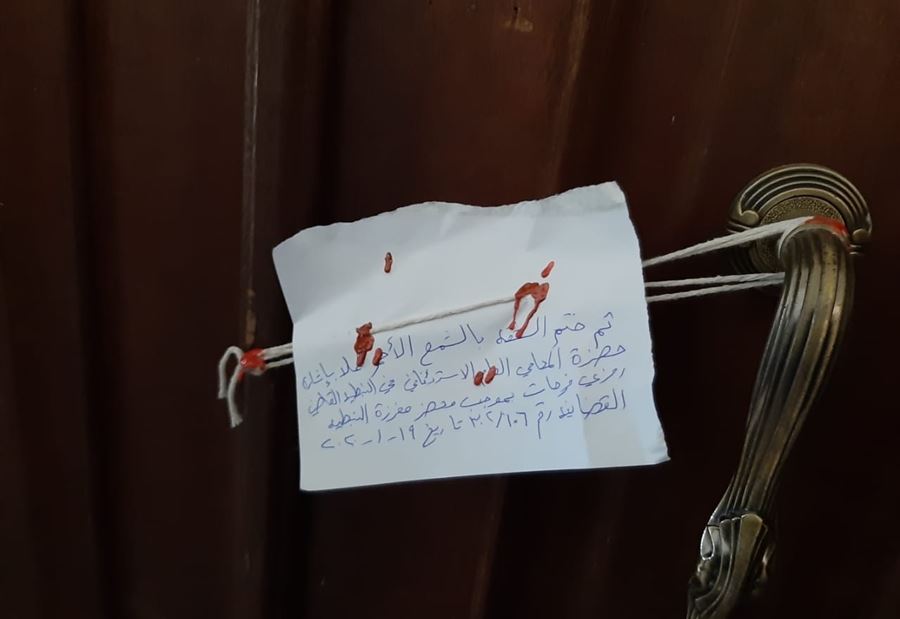 تم ختم الشقة بالشمع الأحمر عملا بإشارة
حضرة المحامي العام الاستئنافي في النبطية القاضي
رمزي فرحات بموجب محضر مفرزة النبطية
القضائية رقم ٣٠٢/١٠٦ تاريخ ١٩-١-٢٠٢٠